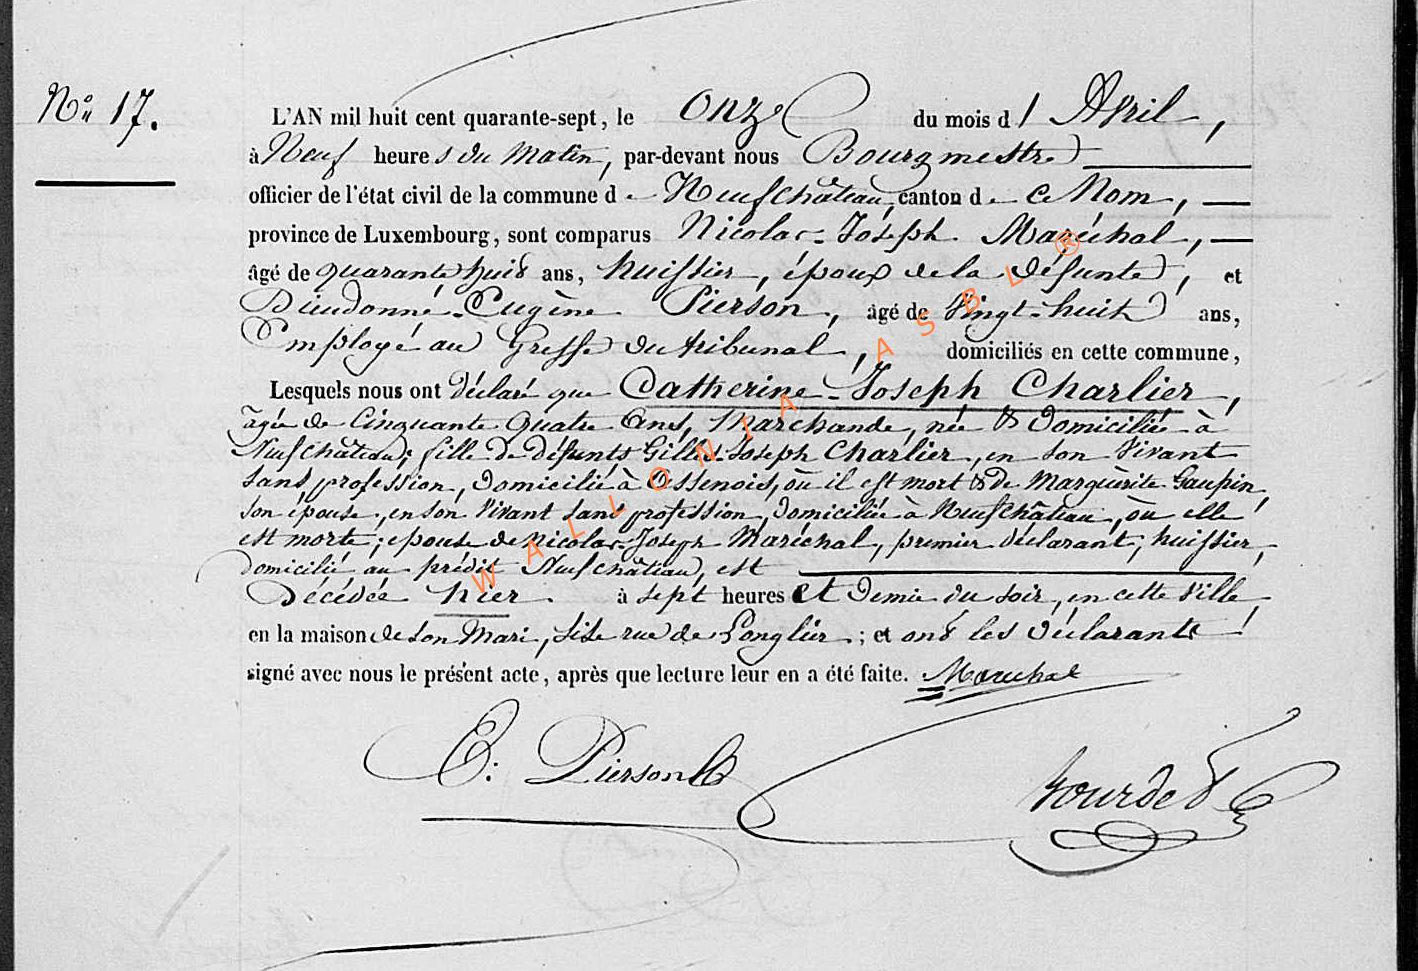 No 17.
L'AN mil huit cent quarante-sept, le onze du mois d'Avril,
à Neuf heures du Matin, par-devant nous Bourgmestre
officier de l'état civil de la commune de Neufchâteau, canton de ce Nom,
province de Luxembourg, sont comparus Nicolas-Joseph Maréchal,
âgé de quarante huit ans, huissier, époux de la défunte, et
Dieudonné-Eugène Pierson, âgé de Vingt-huit ans,
Employé au Greffe du tribunal, domiciliés en cette commune,
Lesquels nous ont déclaré que Catherine-Joseph Charlier,
agée de Cinquante Quatre Ans, Marchande, née & Domiciliée à
Neufchâteau; fille de défunts Gilles-Joseph Charlier, en son Vivant
sans profession, domicilié à Ossenois, où il est mort & de Marguèrite Gaupin,
son épouse, en son Vivant sans profession, domiciliée à Neufchâteau, où elle
est morte; epouse de Nicolas-Joseph Maréchal, premier déclarant, huissier,
domicilié au prédit Neufchâteau, est
Décédée hier à sept heures et Demie du soir, en cette Ville,
en la maison de son Mari, sise rue de Longlier; et ont les déclarants
signé avec nous le présent acte, après que lecture leur en a été faite. Marechal
E: Pierson
WALLONIA ASBL ®